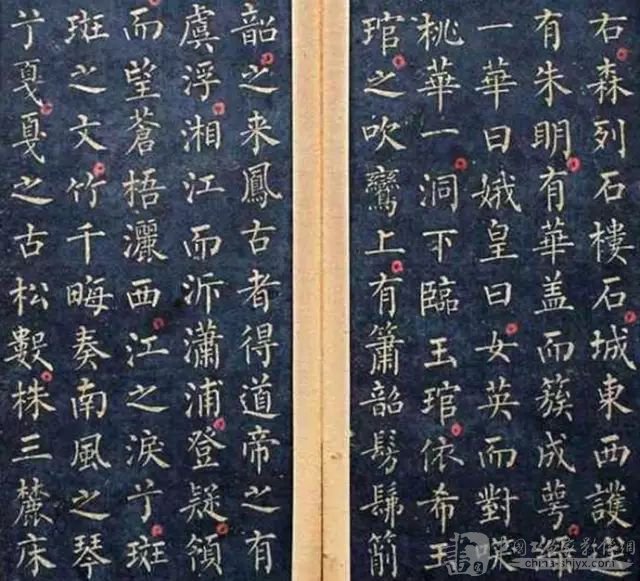 右森列石樓石城東西護
有朱明有華盖而簇成萼綠
一華曰娥皇曰女英而對咲
桃華一洞下臨玉琯依希玉
琯之吹鸞上有簫韶髣髴箾
韶之来鳳古者得道帝之有
虞浮湘江而泝瀟浦登疑嶺
而望蒼梧灑西江之淚于斑
斑之文竹千畮奏南風之琴
于戛戛之古松數株三麓床
china-shjyx.com